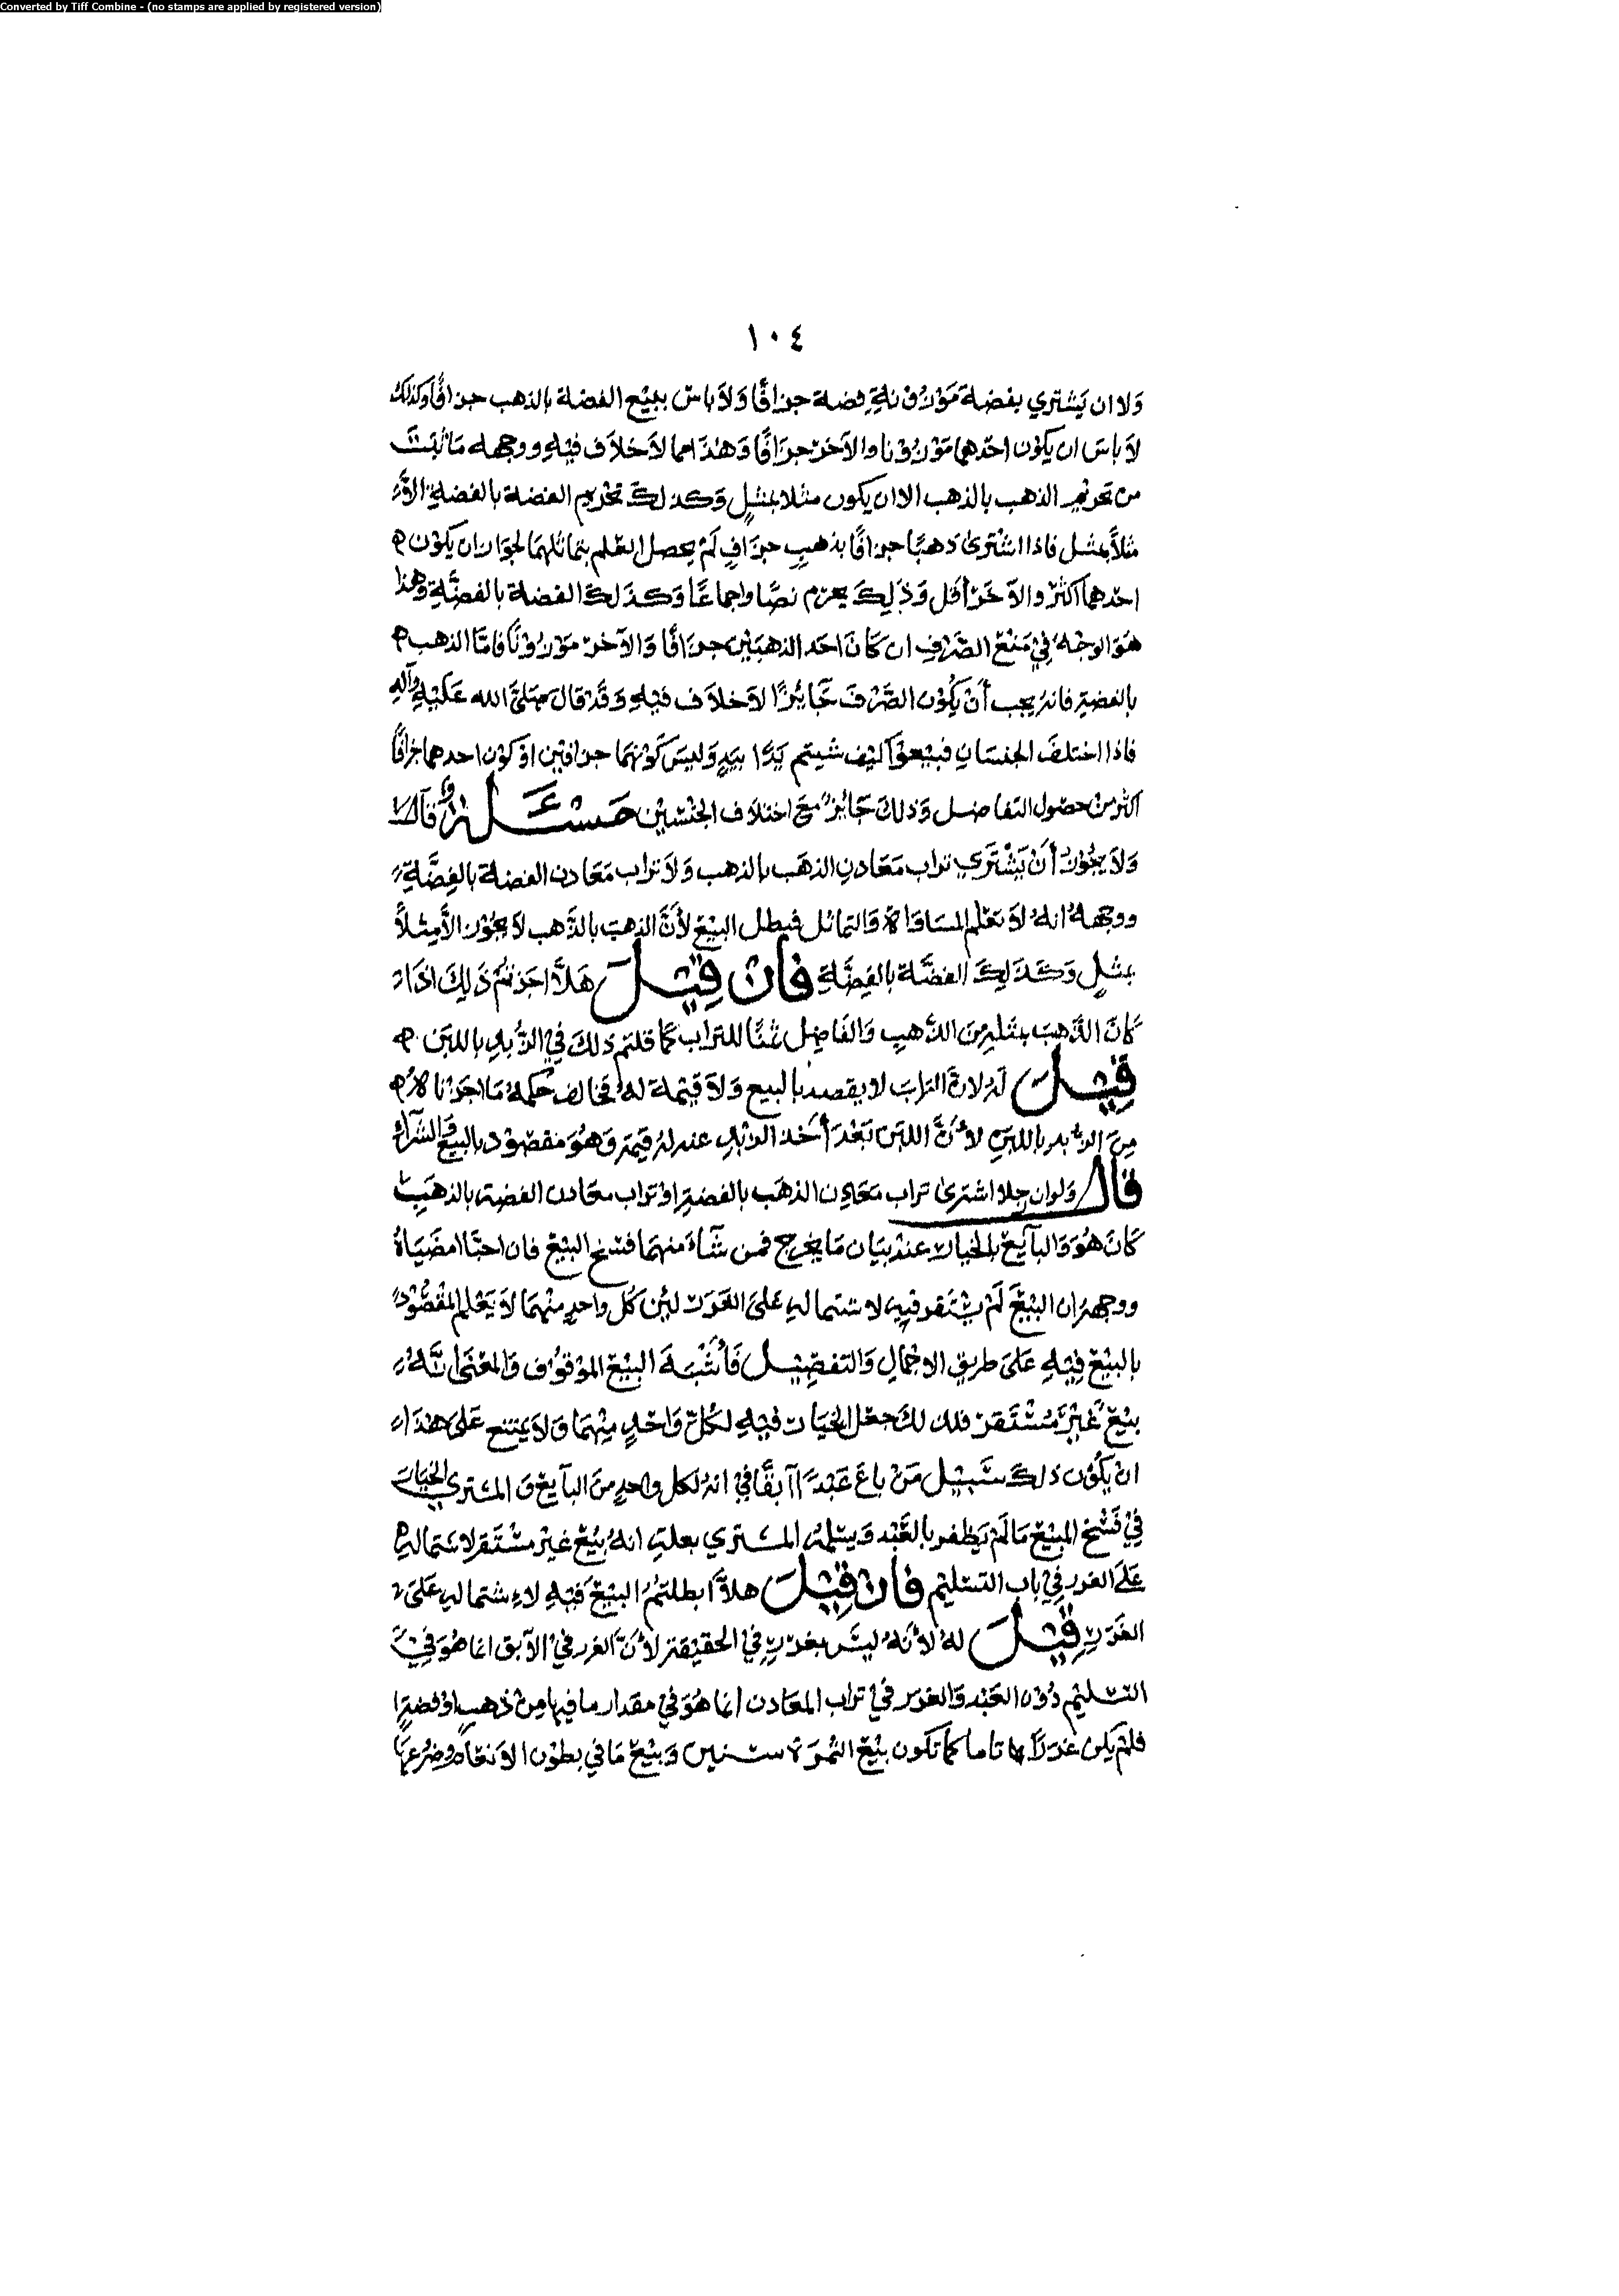 Converted by Tiff Combine - (no stamps are applied by registered version)
١٠٤
وَلا ان يَشتري بفضلة مَوْزُوْنةٍ فضة جزافًا وَلاَ باس ببيْع الفضة بالذهب جزافًا وكذلك
لاَ باسَ ان يكوْن احدهما مَوْزُوْنا والاَخر جزَافًا وَهٰذا مما لاَ خلاَف فيْهِ ووجهه مَا ثبَت
من تحريْم الذهب بالذهب الا ان يكون مثلا بمثلٍ وَكذلكَ تحريم الفضة بالفضةِ الاَّ
مثلاً بمثل فاذا اشْترىٰ ذهبًا جزافًا بذهبٍ جزافٍ لَمْ يحصل العْلم بتماثلهمَا لجوَازان يكوْن
احدهما أكثرْ والآخَرْ أقل وَذٰلِكَ يحرم نصًّا واجماعًا وَكذَلكَ الفضة بالفضَّةِ وهذا
هوَ الوجْهُ فِيْ مَنْعْ الصَّرْفِ ان كَانَ احَد الذهبَيْن جزَافًا وَالآخرْ مَوْزُوْنًا فامَّا الذهب
بالفضةِ فانهُ يجب أنْ يكُوْن الصَّرْفَ جَائِزًا لاَ خلاَف فيْهِ وَقَدْ قالَ صَلىَّ الله عَليْهِ وآلهِ
فاذا اختلفَ الجنسَانِ فبيْعوْا كيْف شيتم يَدًا بيَدٍ وَليسَ كوْنهمَا جزافيْن اوْ كوْن احدهما جزافًا
اكثر منْ حصوْل التفاضل وَذلكَ جَائِزٌ معَ اختلاَف الجنْسَيْن مَسْئَلة وَقالَ
وَلاَ يجُوْزُ أنْ يَشْتَري تراب مَعَادنِ الذهَب بالذهب وَلاَ تراب مَعَادن الفضة بالفِضَّةِ
ووجههُ انهُ لاَ نعْلم المسَاوَاة وَالتماثل فبطل البيْعْ لأنَّ الذهبَ بالذَّهب لاَ يجُوْز الاَّ مثلاً
بمثلٍ وَكَذَلِكَ الفضَّة بالفِضَّةِ فَان قِيْل هَلاَّ اجَزتمُ ذَلِكَ اذَا
كانَ الذَّهبَ بمثلهِ منَ الذَّهبِ وَالفَاضِل ثمنًا للترابِ كمَا قلتم ذلكَ فِيْ الزُّبدِ باللبَن
قِيْل لهُ لانَّ الترَابَ لا يقصد بالبيع وَلاَ قيْمة لهُ فخالف حُكمهُ مَا اجَزنَاهُ
مِنَ الزُّبد باللبنِ لأنَّ اللبَن بَعْدَ أخذ الزُّبدِ عنه لهُ قيمَة وَهُوَ مَقصُوْد بالبيْع وَالشّرَاء
قال وَلوان رجلا اشترىٰ تراب مَعَادِن الذهَب بالفضةِ اوْ تراب معَادن الفضة بالذهَب
كَانَ هُوَ وَالبآئِعْ بالخيَارِ عنْد بيَان مَا يخرج فمن شَآءَ منهمَا فسَخ البيْعْ فان احبَّا امضَيَاهُ
ووجههُ ان البيْعَ لَمْ يسْتَقر فيهِ لاشتمالهِ علىَ الغَرَر لئن كُل واحدٍ منْهمَا لاَ يَعْلم المقْصُوْدُ
بالبيْعْ فيْهِ عَلىَ طريقِ الاجمالِ وَالتفصِيْل فَأشْبَهَ البيْعْ الموْقوْف وَالمعْنَى انَّهُ
بيْعْ غيْرُ مُسْتَقرْ فلذلكَ جعْل الخيَار فيْهِ لكُلّ وَاحدٍ مِنْهمَا وَلاَ يمتنع عَلىَ هٰذَا
انْ يكُوْن ذلكَ سَبيْل مَنْ باعَ عَبْدًا آبقًا فِيْ انهُ لكل واحدٍ منَ البآئِع وَ المشتري الخيَار
فِيْ فَسْخ المبيْعْ مَا لَمْ يَظفر بالعَّبْد وَيسَلمْهُ المشتري بعلةِ انهُ بيْعْ غيْرْ مسْتَقر لاشتمالهِ
عَلىَ الغرر فِيْ باب التسْليْم فَان قِيْل هلاَّ ابطلتمُ البيْعَ فيْهِ لاءِشتمالهِ عَلىَ
الغرَرِ قِيْل لهُ لأنهُ ليْسَ بغررٍ فِيْ الحقيْقة لأنَّ الغرر فيْ الآبق انما هُوَ فِيْ
التسْليْم دُوْن العَبْد وَالغرَر فيْ تراب المعَادن انما هُوَ فيْ مقدار ما فيهَا منْ ذهبٍ اوْ فضةٍ
فلمْ يكن غررًا تاما كمَا تكون بيْعْ الثمرَة سنين وَبيْعْ مَا في بطوْن الانعَام وضرُوْعهَا